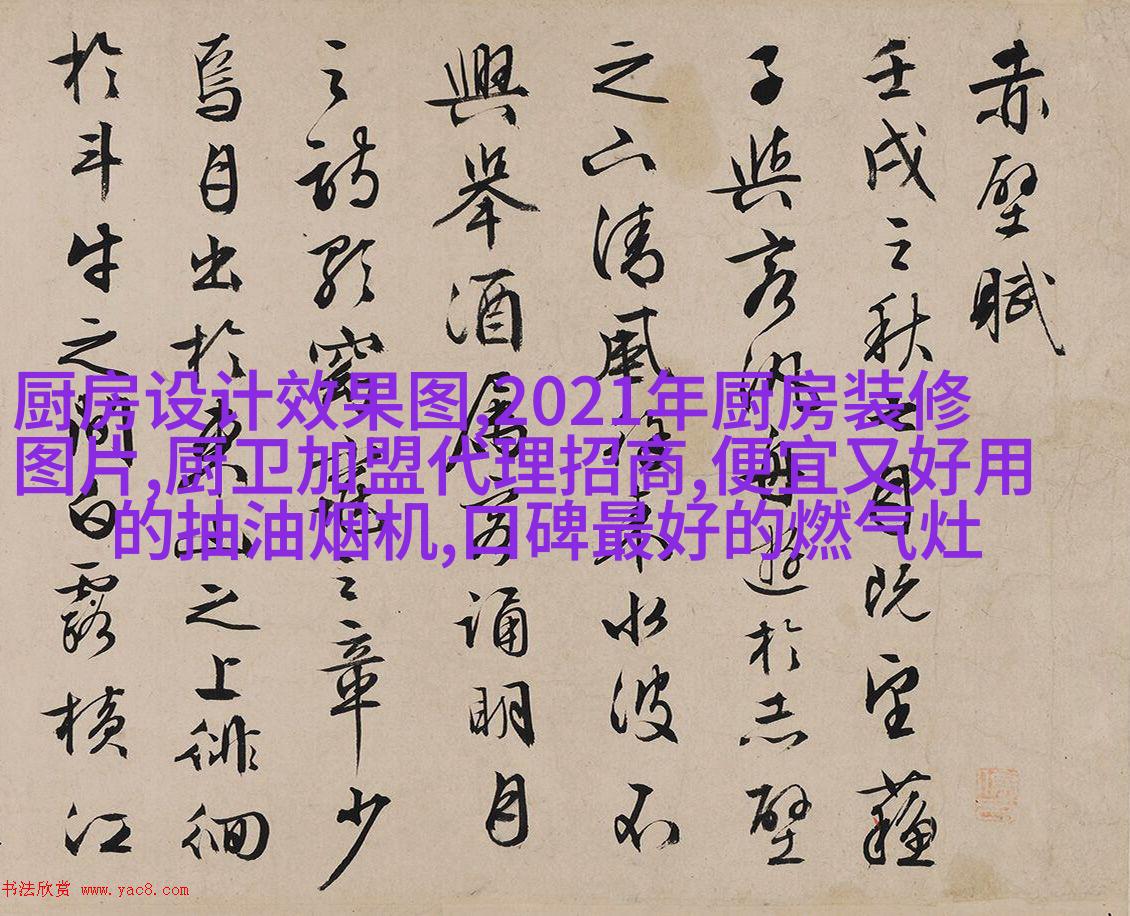 赤壁賦
壬戌之秋七月既望蘓
子與客泛舟遊於赤壁
之下清風徐來水波不
興舉酒屬客誦明月
之詩歌窈窕之章少
焉月出於東山之上徘徊
於斗牛之間白露橫江
厨房设计效果图,2021年厨房装修
图片,厨卫加盟代理招商,便宜又好用
的抽油烟机,口碑最好的燃气灶
书法欣赏 www.yac8.com